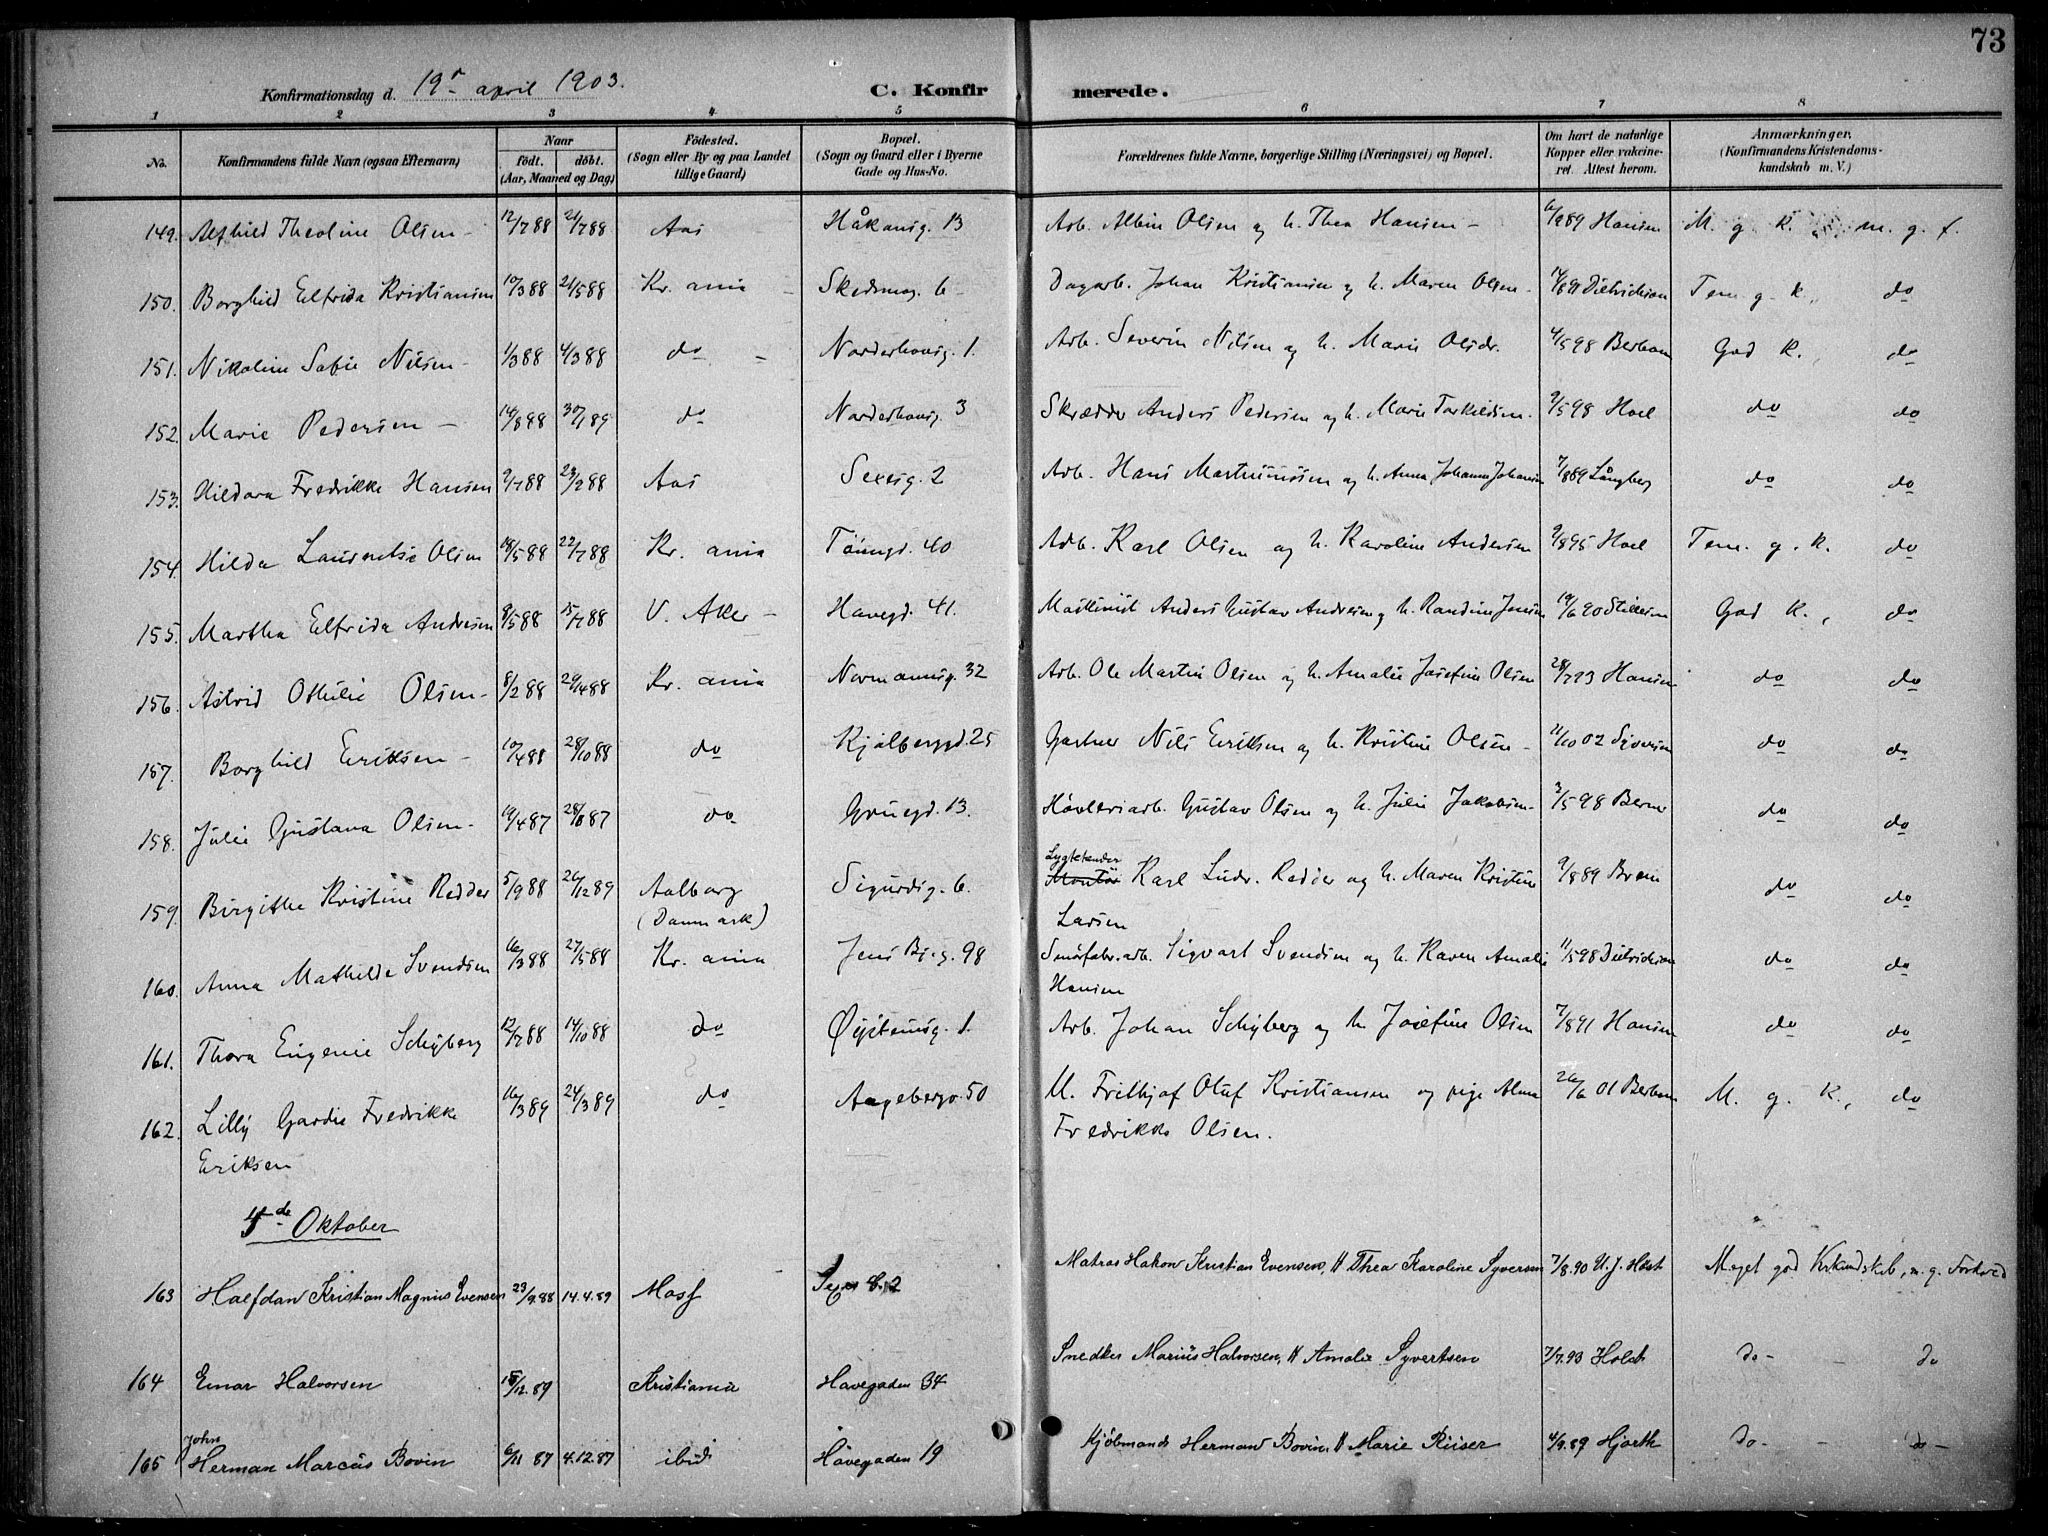 73
Konfirmationsdag d. 19de april 1903. C. Konfirmerede.
1 2 3 4 5 6 7 8
No. Konfirmandens fulde Navn (ogsaa Efternavn) Naar født. døbt. (Aar, Maaned og Dag) Fødested. (Sogn eller By og paa Landet tillige Gaard) Bopæl. (Sogn og Gaard eller i Byerne Gade og Hus-No. Forældrenes fulde Navne, borgerlige Stilling (Næringsvei) og Bopæl. Om havt de naturlige Kopper eller vakcineret. Attest herom. Anmærkninger. (Konfirmandens Kristendomskundskab m. V.)
149. Alfhild Theoline Olsen - 12/7 88 21/7 88 Aas Håkonsg. 13 Arb. Albin Olsen og h. Thea Hansen - 6/9 89 Hansen M. g. k. m. g. f.
150. Borghild Elfrida Kristiansen 10/3 88 21/5 88 Kr. ania - Skedsmog. 6 - Dagarb. Johan Kristiansen og h. Maren Olsen - 14/8 91 Dietrichson Tem g. k., do
151. Nikoline Sofie Nilsen - 1/3 88 4/3 88 do - Norderhovsg. 1. Arb. Severin Nilsen og h. Marie Olsdr. 4/5 98 Berbom God k., do
152. Marie Pedersen - 14/8 88 30/1 89 do Norderhovsg. 3 Skrædder Anders Pedersen og h. Marie Torkildsen. 9/5 98 Hoel do do
153. Hildora Fredrikke Hansen 9/1 88 23/2 88 Aas Sexesg. 2 Arb. Hans Martinussen og h. Anna Johanne Johansen 7/8 89 Långberg do do
154. Hilda Laurentse Olsen 18/5 88 22/7 88 Kr. ania Tøiengd. 40 Arb. Karl Olsen og h. Karoline Andersen 9/8 95 Hoel Tem. g. k. do
155. Martha Elfrida Andresen 9/5 88 15/7 88 V. Aker - Havegd. 41. Maskinist Anders Gustav Andresen og h. Randine Jensen 19/6 90 God k., do
156. Astrid Othilie Olsen - 8/2 88 29/4 88 Kr. ania Normannsg. 32 Arb. Ole Martin Olsen og h. Amalie Josefine Olsen 28/7 93 Hansen do do
157. Borghild Eriksen - 10/4 88 28/10 88 do Kjølberggd. 25 Gartner Nils Eriksen og h. Kristine Olsen - 11/10 02 Siversen do do
158. Julie Gustava Olsen - 19/4 87 28/8 87 do Gruegd. 13. Høvleriarb. Gustav Olsen og h. Julie Jakobsen - 3/5 98 Berner do do
159. Birgithe Kristine Redder 5/9 88 26/12 89 Aalborg (Danmark) Sigurdsg. 6. Lygtetænder Montør Karl Ludv. Redder og h. Maren Kristine Larsen 9/8 89 Brem do do
160. Anna Mathilde Svendsen 16/3 88 27/5 88 Kr. ania Jens Bj. g. 98 Smørfabr.arb. Sigvart Svendsen og h. Karen Amalie Hansen 11/5 98 Dietrichson do do
161. Thora Eugenie Schyberg 12/7 88 14/10 88 do Øysteinsg. 1. Arb. Johan Schyberg og h. Josefine Olsen 7/8 91 Hansen do do
162. Lilly Gardie Fredrikke Eriksen 16/3 89 24/3 89 do Aagebergv. 50 U. Frithjof Oluf Kristiansen og pige Alma Fredrikke Olsen. 26/6 01 Berbom M. g. k., do
4de Oktober
163 Halfdan Kristian Magnus Evensen 23/9.88 14.4.89 Moss Sexes G. 2 Matros Hakon Kristian Evensen, H Thea Karoline Syversen 7/8.90 U. J. Høst Meget god Krkundskab, m. g. Forhold
164 Einar Halvorsen 15/12.89 Kristiania Havegaden 34 Snedker Marius Halvorsen, H Amalie Syvertsen 7/7.93 Holst do - - do
165 John Herman Marcus Bovin 6/11 87 4.12.87 ibid Havegaden 19 Kjøbmand Herman Bovin, H Marie Riiser 4/9.89 Hjorth do - - do -